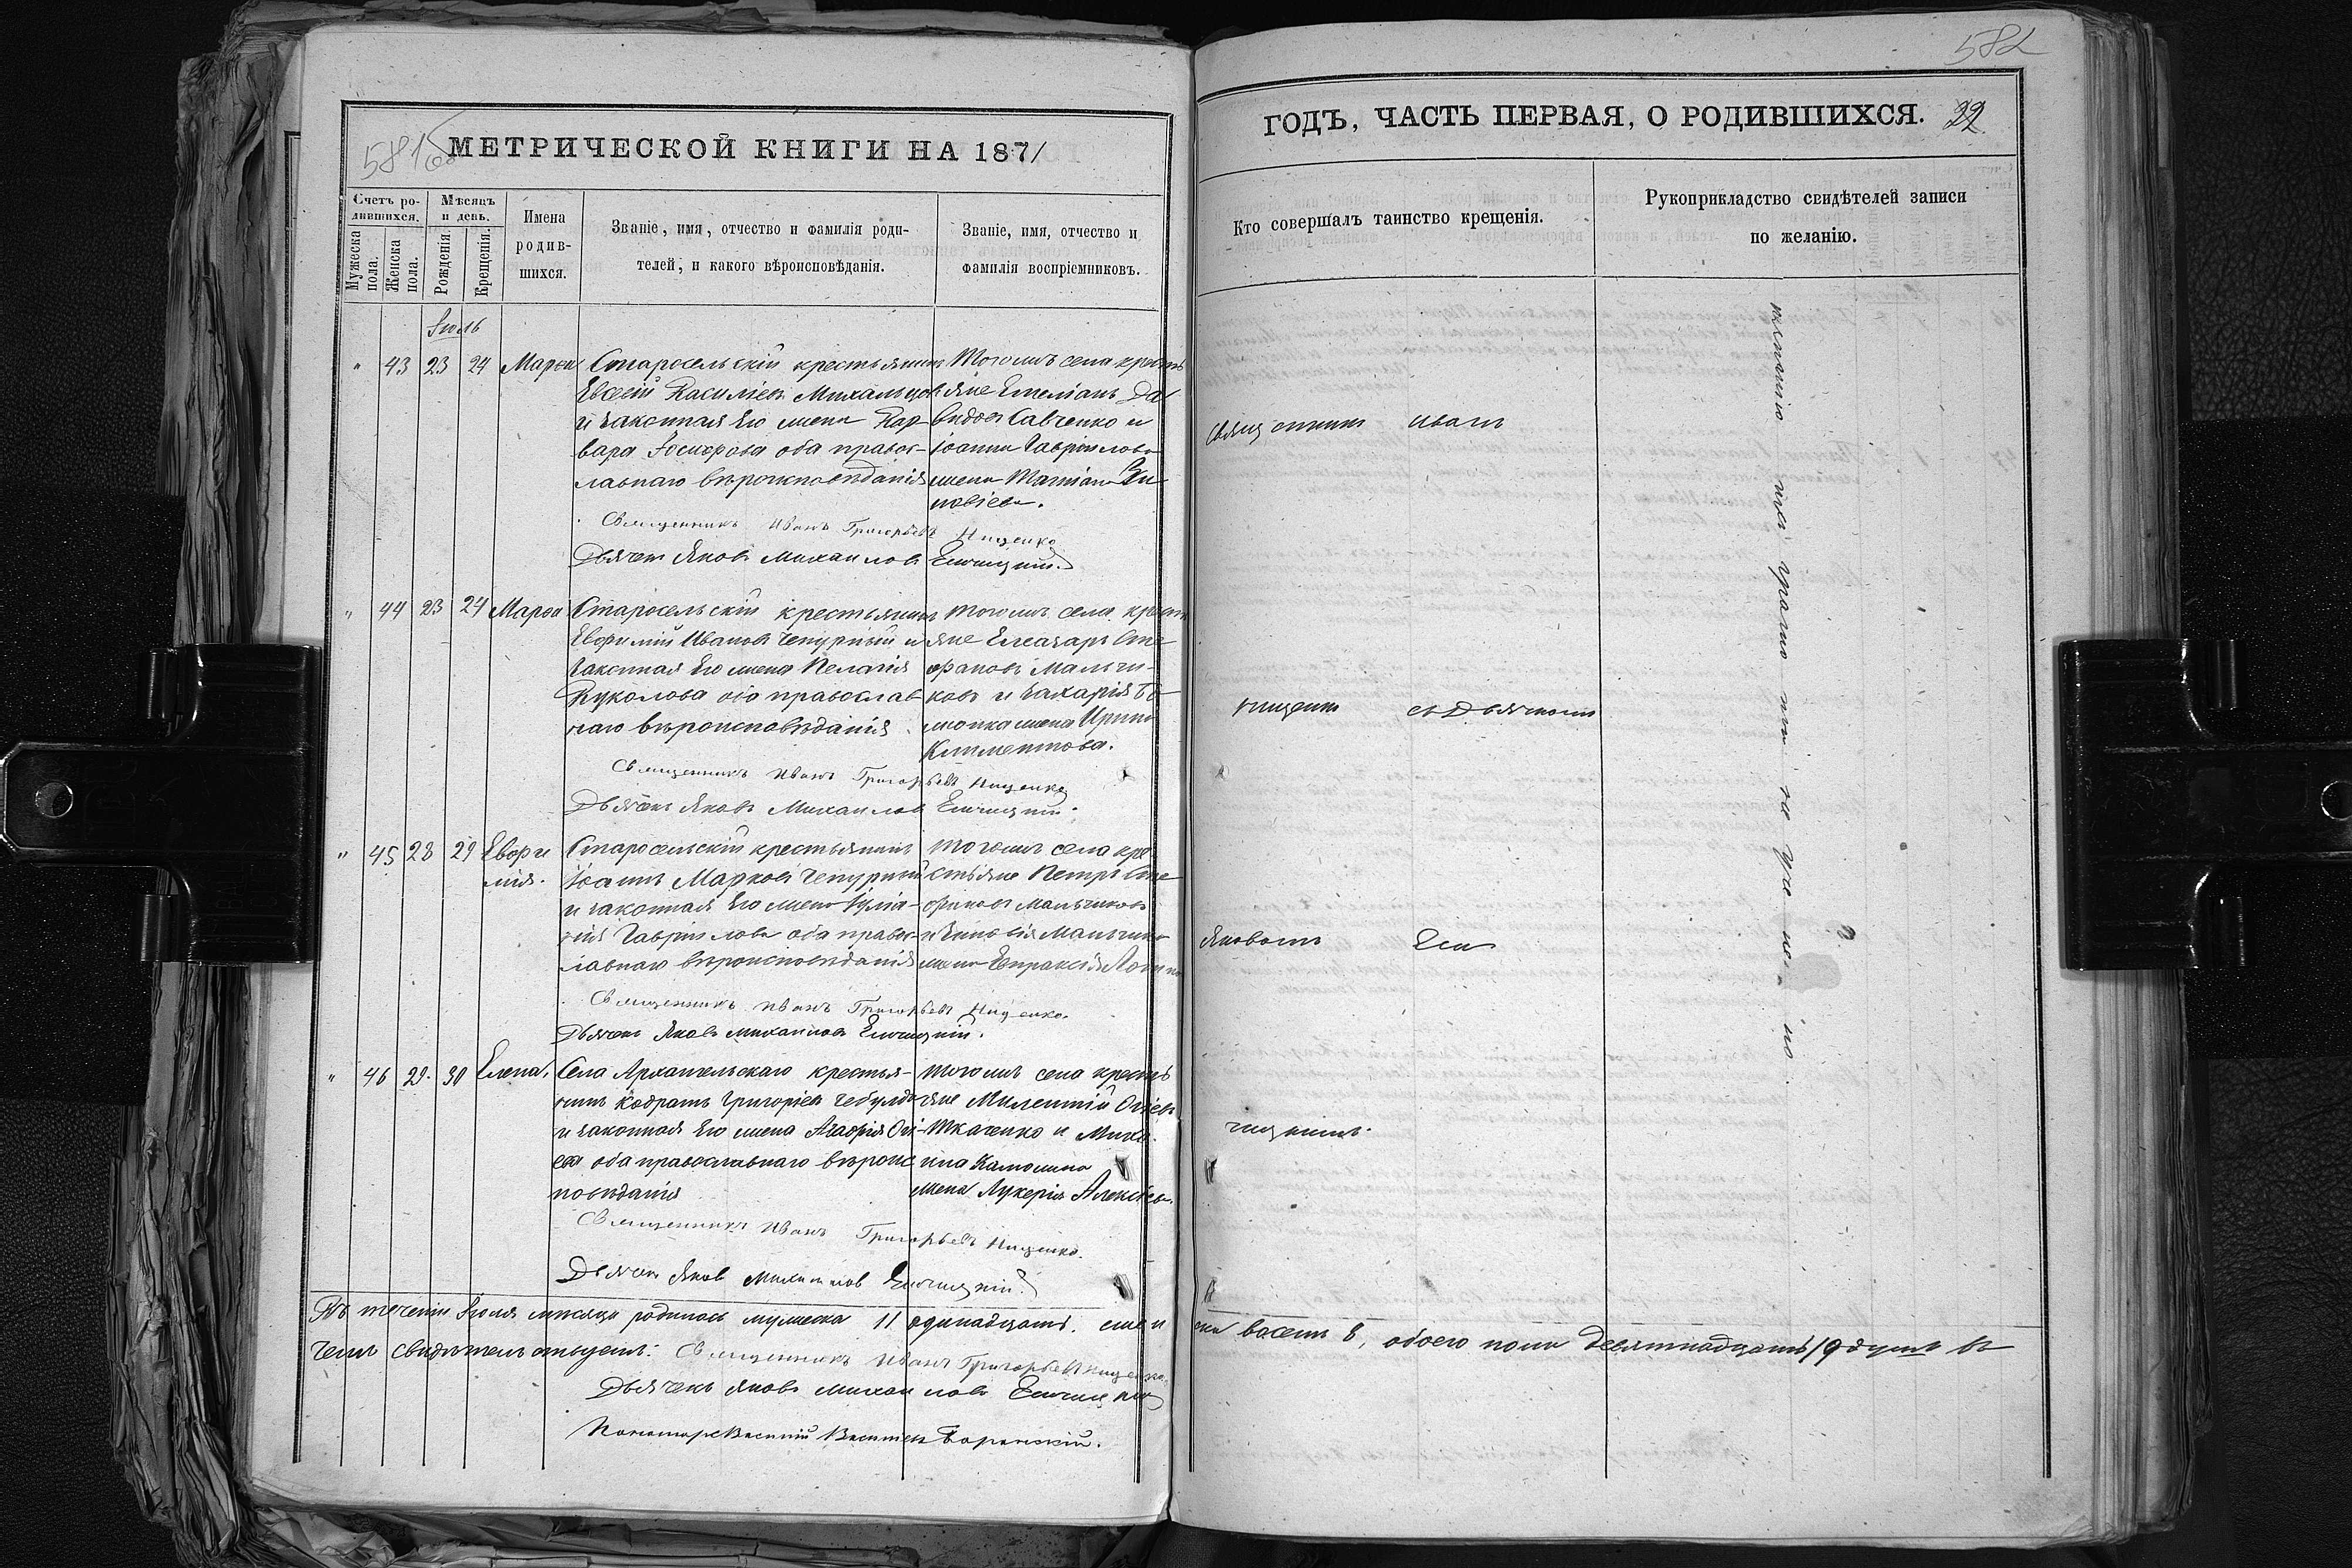 581об
МЕТРИЧЕСКОЙ КНИГИ НА 1871
Счетъ родившихся.
Мужеска пола.
Женска пола.
Мѣсяцъ и день.
Рожденія.
Крещенія.
Имена родившихся.
Званіе, имя, отчество и фамилія родителей, и какого вѣроисповѣданія.
Званіе, имя, отчество и фамилія воспріемниковъ.
Іюль
" 43 23 24 Марѳа
Старосельскій крестьянинъ
Евсевій Василіевъ Михальцов
и законная его жена Вар-
вара Іосифова оба правос-
лавнаго вѣроисповѣданія
Тогожъ села кресть
яне Емеліанъ Да
видов Савченко и
Іоанна Гавріилова
жена Татіана Зи
новіева.
Священникъ Иванъ Григорьевъ Нищенко
Дьячек Яковъ Михаиловъ
" 44 23 24 Марѳа
Старосельскій крестьянинъ
Евфимій Ивановъ Чепурный и
законная его жена Пелагія
оба православ
наго вѣроисповѣданія
тогожъ села крест
яне Елеазаръ Сте
фановъ Мальчи-
ковъ и Захарія
жена Ирина
Климентова.
Священникъ Иванъ Григорьевъ Нищенко
Дьячекъ Яковъ Михаилов
" 45 28 29 Евфи
мія.
Старосельскій крестьянинъ
Іоаннъ Марковъ Чепурный
и законная его жена Іулiа-
нія Гавриилова оба правос-
лавнаго вѣроисповѣданія
тогожъ села кре
стьяне Петръ Сте
фановъ Мальчиковъ
и Зиновія Мальчико
жена Евпраксія
Священникъ Иванъ Григорьевъ Нищенко.
Дьячекъ Яковъ Михаиловъ
" 46 29. 30 Елена.
Села Архангельскаго крестья-
нинъ Кодратъ Григоріевъ
и законная его жена Агафія
ева оба православнаго вѣроис
повѣданія
тогожъ села кресть
яне Милентій
Ткаченко и Миха
ила
жена Лукерія Алексіева.
Священникъ Иванъ Григорьевъ Нищенко.
Дьячек Яков Михаилов
Въ теченіи Іюля мѣсяца родилось мужеска 11 одинадцать. женъ
чемъ свидѣтельствуемъ: Священникъ Иванъ Григорьевъ Нищенко.
Дьячекъ Яковъ Михаиловъ
Пономарь Василій Васильев Боранскій.
582
ГОДЪ, ЧАСТЬ ПЕРВАЯ, О РОДИВШИХСЯ. 22
Кто совершалъ таинство крещенія.
Рукоприкладство свидѣтелей записи по желанію.
Священникъ Иванъ
Нищенко съ Дьячкомъ
Яковомъ Ели
чицкимъ.
ска восемь 8, обоего пола девятнадцать 19 душъ въ